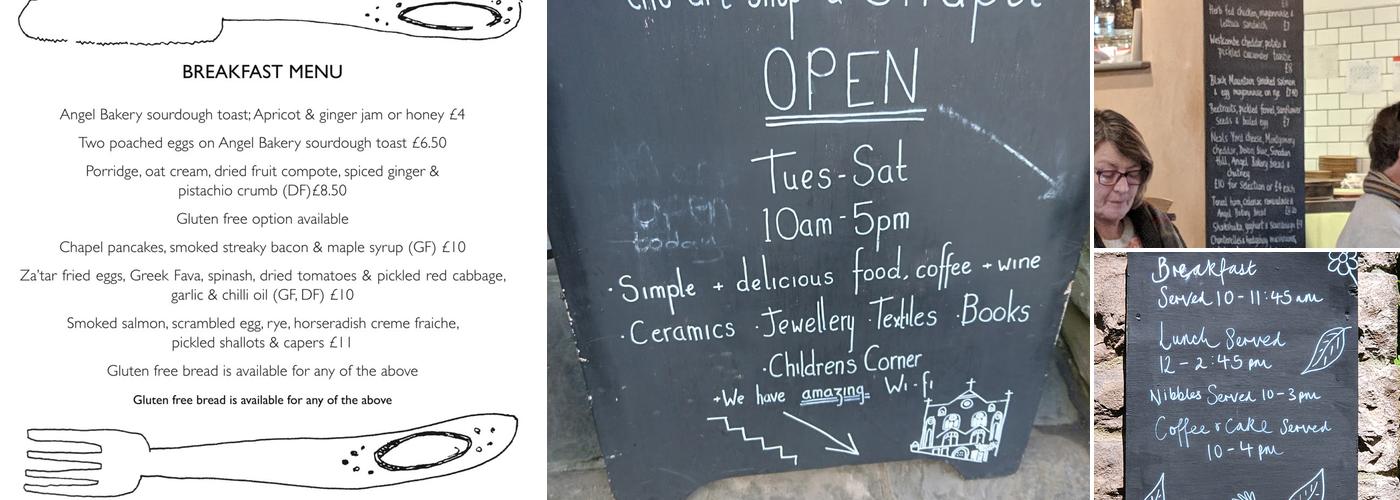 BREAKFAST MENU
Angel Bakery sourdough toast; Apricot & ginger jam or honey £4
Two poached eggs on Angel Bakery sourdough toast £6.50
Porridge, oat cream, dried fruit compote, spiced ginger &
pistachio crumb (DF)£8.50
Gluten free option available
Chapel pancakes, smoked streaky bacon & maple syrup (GF) £10
Za'tar fried eggs, Greek Fava, spinash, dried tomatoes & pickled red cabbage,
garlic & chilli oil (GF, DF) £10
Smoked salmon, scrambled egg, rye, horseradish creme fraiche,
pickled shallots & capers £11
Gluten free bread is available for any of the above
Gluten free bread is available for any of the above
the art shop & Chapel
OPEN
Tues-Sat
10am-5pm
open
today
·Simple + delicious food, coffee + wine
·Ceramics ·Jewellery ·Textiles ·Books
·Childrens Corner
+We have amazing Wi-fi
Herb fed chicken, mayonnaise &
lettuce sandwich £7
Westcombe cheddar, potato &
pickled cucumber toastie
£8
Black Mountain smoked salmon
& egg mayonnaise on rye
Beetroots, pickled fennel, sunflower
seeds & boiled egg £7
Neals Yard cheese, Montgomery
cheddar, Devon blue,
Hill, Angel Bakery bread &
chutney
£10 for selection or £4 each
ham, celeriac remoulade &
Angel Bakery bread
Shakshuka, yoghurt & sourdough £9
Breakfast
Served 10-11:45am
Lunch Served
12-2:45pm
Nibbles Served 10-3pm
Coffee & Cake Served
10-4pm